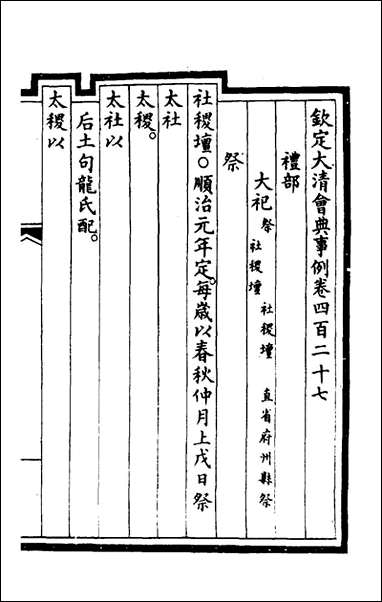 欽定大清會典事例卷四百二十七
禮部
大祀 祭社稷壇 直省府州縣祭社稷壇
祭
社稷壇○順治元年定。每歲以春秋仲月上戊日祭
太社
太稷。
太社以
后土句龍氏配。
太稷以